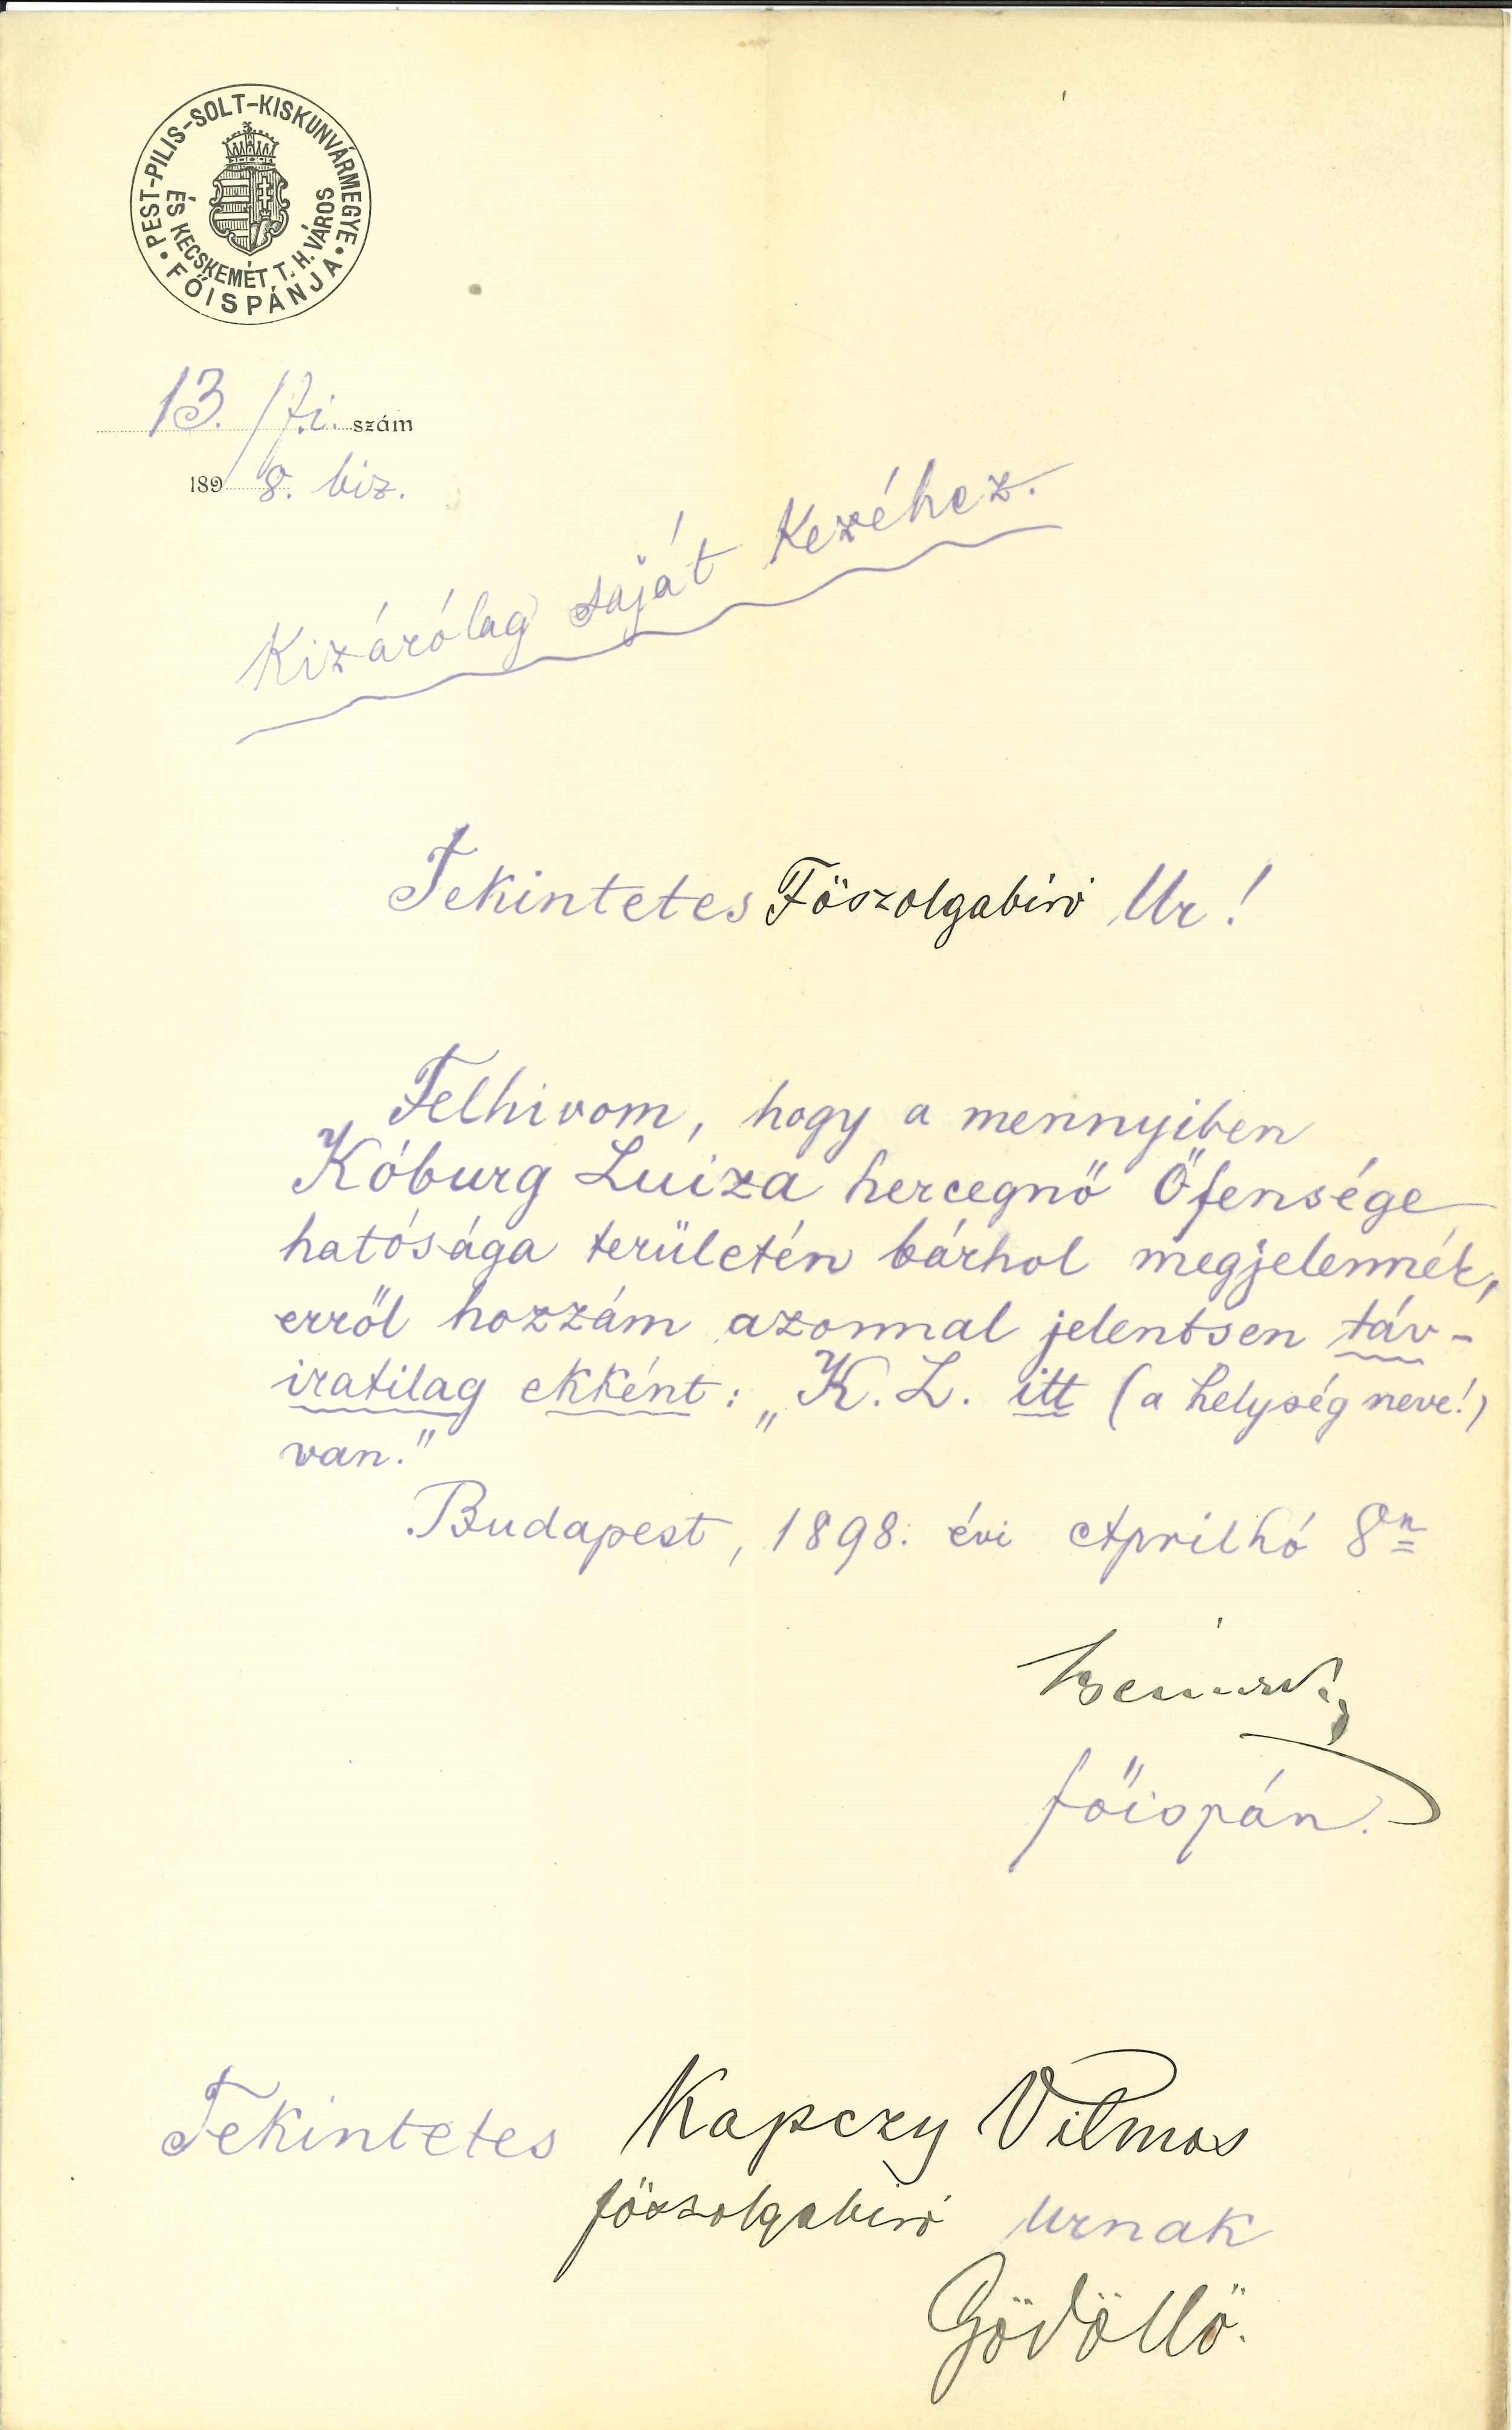 PEST-PILIS-SOLT-KISKUNVÁRMEGYE
ÉS KECSKEMÉT T. H. VÁROS
FŐISPÁNJA
13. /f.i. szám
1898. biz.
Kizárólag saját kezéhez.
Tekintetes Főszolgabiró Ur!
Felhivom, hogy a mennyiben
Kóburg Luiza hercegnő Őfensége
hatósága területén bárhol megjelennék,
erről hozzám azonnal jelentsen táv-
iratilag ekként: „K. L. itt (a helység neve!)
van."
Budapest, 1898. évi Aprilhó 8n
főispán.
Tekintetes Kapczy Vilmos
főszolgabiró Urnak
Gödöllő.